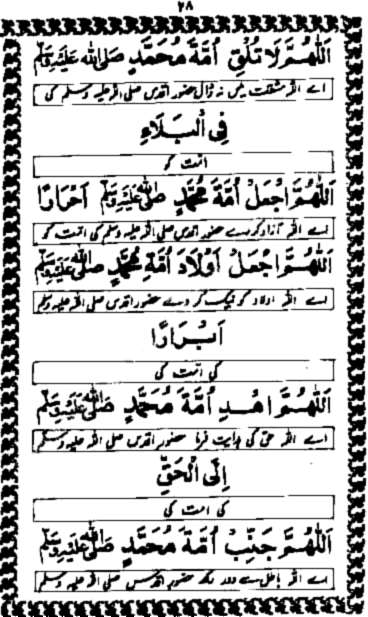 ۲۸
اَللّٰهُمَّ لَا تُلْقِ اُمَّةَ مُحَمَّدٍ صَلَّى اللّٰهُ عَلَيْهِ وَسَلَّمَ
اے اللہ مشقت میں نہ ڈال حضور اقدس صلی اللہ علیہ وسلم کی
فِی الْبَلَاءِ
امت کو
اَللّٰهُمَّ اجْعَلْ اُمَّةَ مُحَمَّدٍ ﷺ اَحْرَارًا
اے اللہ آزاد کر دے حضور اقدس صلی اللہ علیہ وسلم کی امت کو
اَللّٰهُمَّ اجْعَلْ اَوْلَادَ اُمَّةِ مُحَمَّدٍ ﷺ
اے اللہ اولاد کو نیک کر دے حضور اقدس صلی اللہ علیہ وسلم
اَبْرَارًا
کی امت کی
اَللّٰهُمَّ اهْدِ اُمَّةَ مُحَمَّدٍ ﷺ
اے اللہ حق کی ہدایت فرما حضور اقدس صلی اللہ علیہ وسلم
اِلَی الْحَقِّ
کی امت کی
اَللّٰهُمَّ جَنِّبْ اُمَّةَ مُحَمَّدٍ ﷺ
اے اللہ باطل سے دور رکھ حضور اقدس صلی اللہ علیہ وسلم